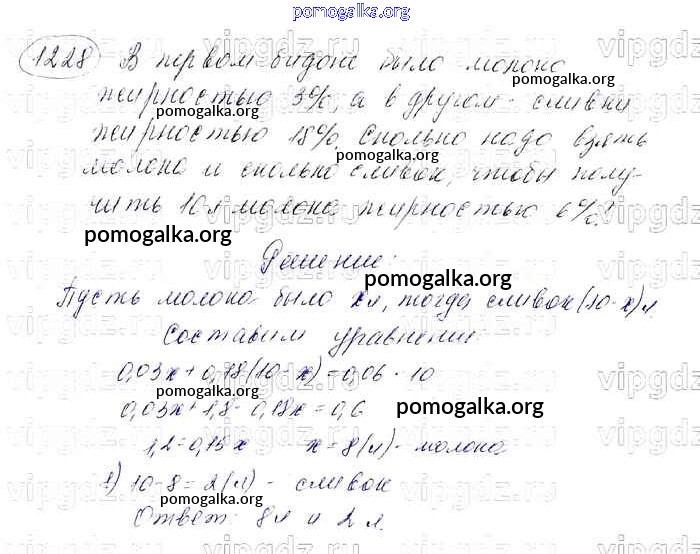 pomogalka.org
1228 В первом бидоне было молоко
жирностью 3%, а в другом - сливки
жирностью 18%. Сколько надо взять
pomogalka.org
молока и сколько сливок, чтобы полу-
чить 10 л молока жирностью 6%?
pomogalka.org
Решение:
pomogalka.org
Пусть молока было x л, тогда сливок (10-x) л.
Составим уравнение:
0,03x + 0,18(10-x) = 0,06 · 10
pomogalka.org
0,03x + 1,8 - 0,18x = 0,6
pomogalka.org
1,2 = 0,15x x = 8 (л) - молока
1) 10-8 = 2 (л) - сливок
pomogalka.org
Ответ: 8 л и 2 л.